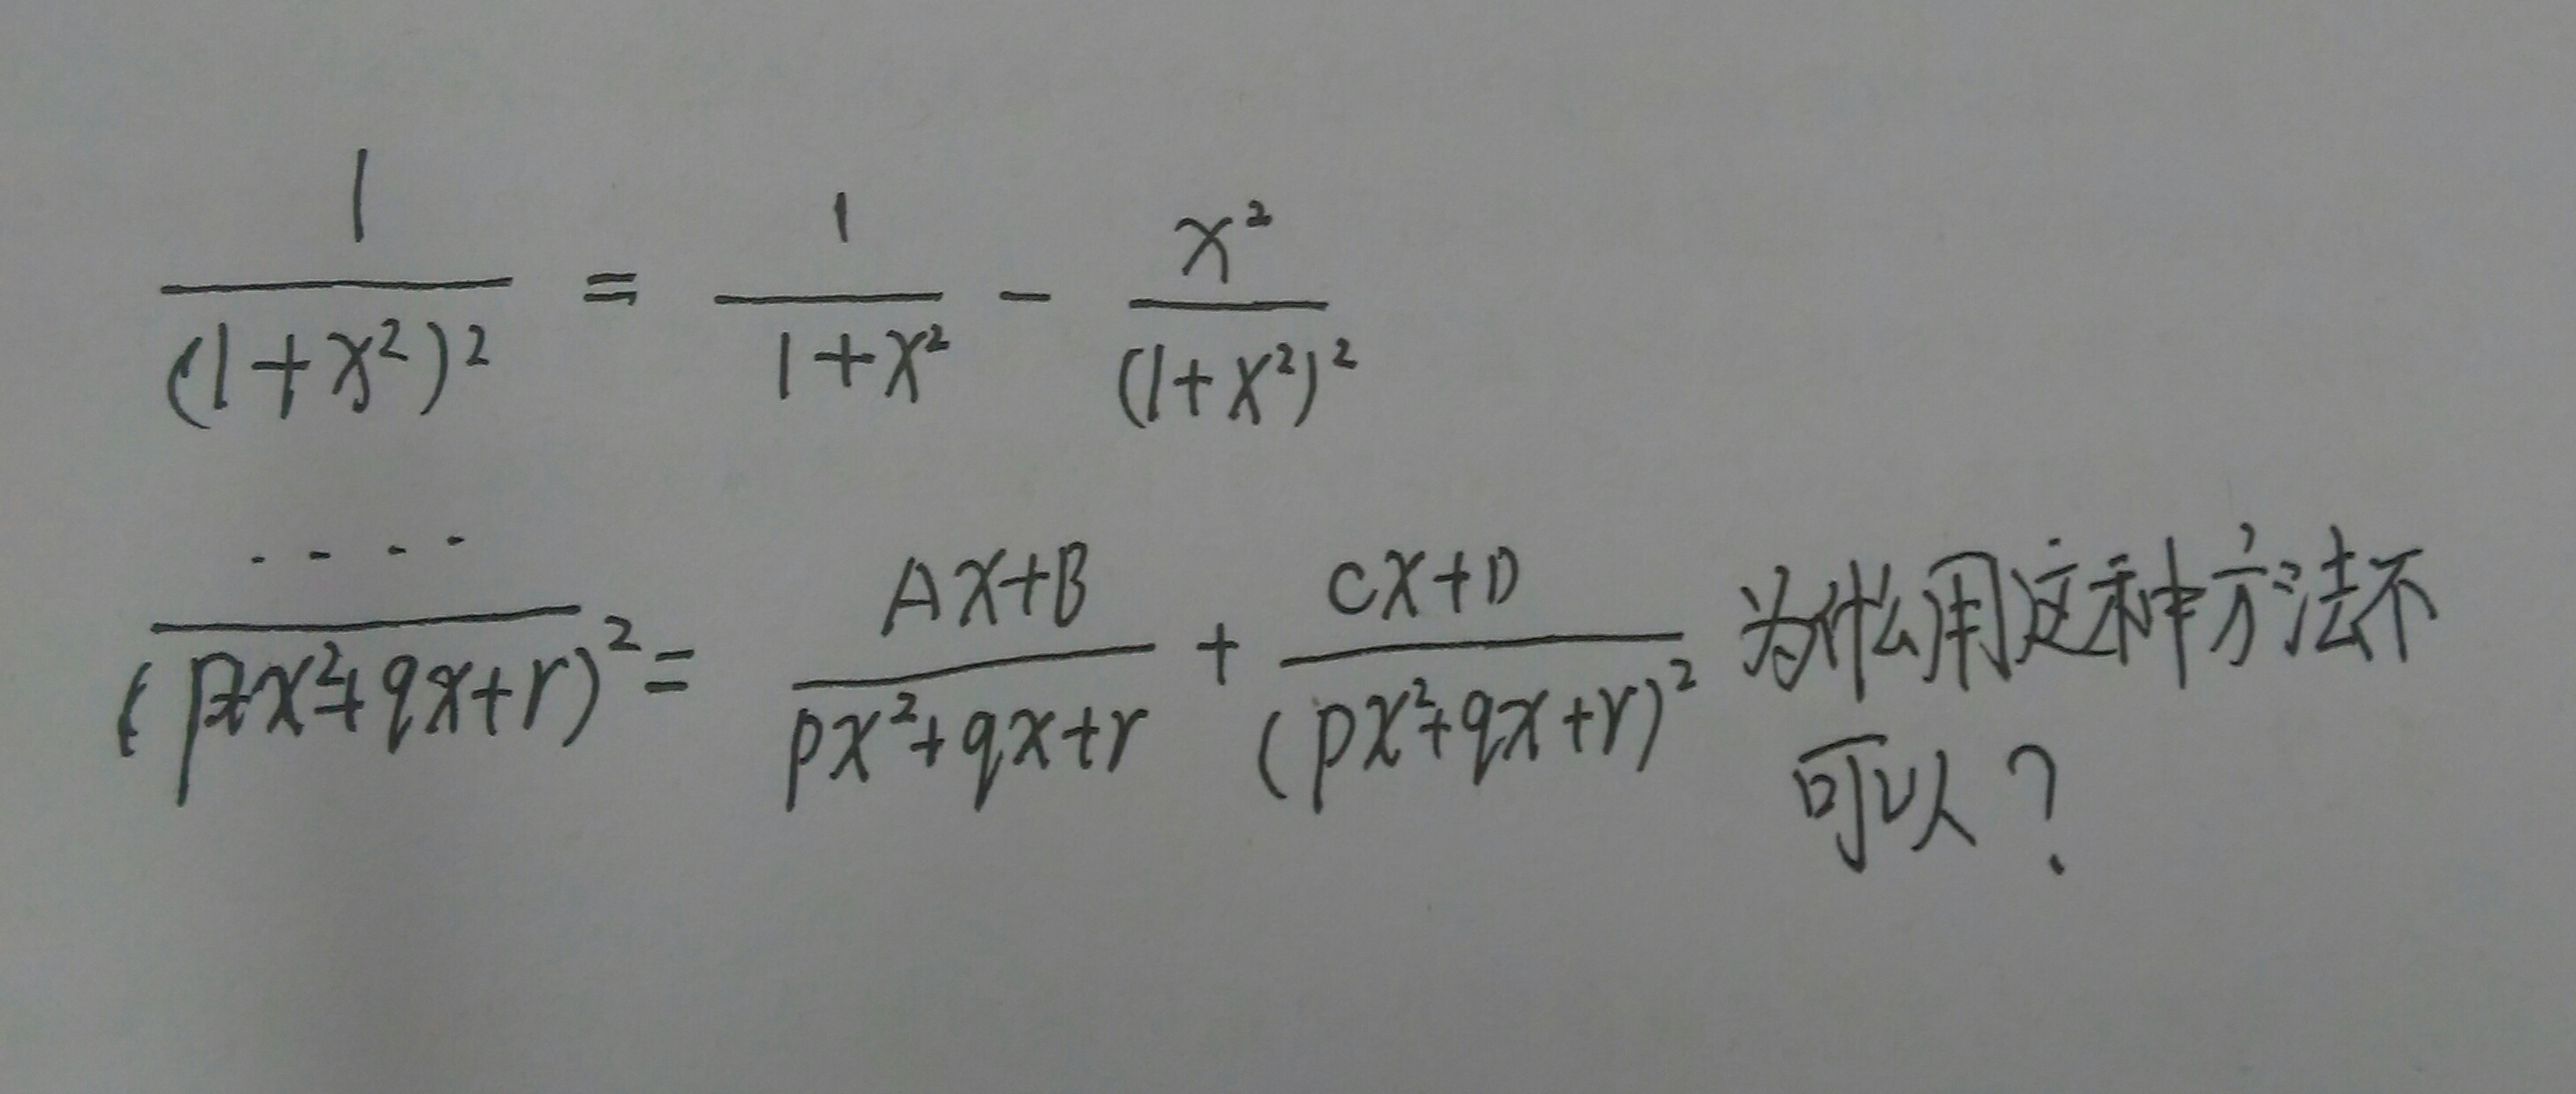 1/(1+x²)² = 1/(1+x²) - x²/(1+x²)²
····/(px²+qx+r)² = (Ax+B)/(px²+qx+r) + (Cx+D)/(px²+qx+r)² 为什么用这种方法不
可以?